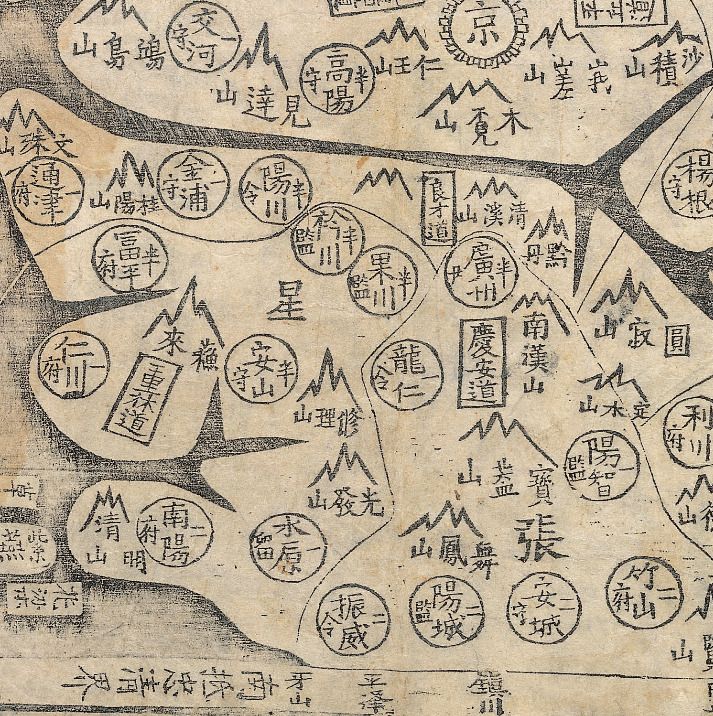 京
交河 守
高陽 半 守
鴻島山
見達山
仁王山
木覓山
峩嵯山
沙積山
文殊山
通津 二 府
桂陽山
金浦 一 守
陽川 半 令
良才道
清溪山
黔丹
楊根 守
富平 半 府
衿川 半 監
果川 半 監
廣州 半
星
蘇來
仁川 一 府
重林道
安山 半 守
龍仁 一 令
慶安道
南漢山
圓寂山
修理山
定水山
利川 府
光發山
寶盖山
陽智 一 監
清明山
南陽 二 府
水原 一 留
張
舞鳳山
草
紫燕
花梁
振威 二 令
陽城 二 監
安城 二 守
竹山 二 府
南抵忠清界
平澤
鎮川